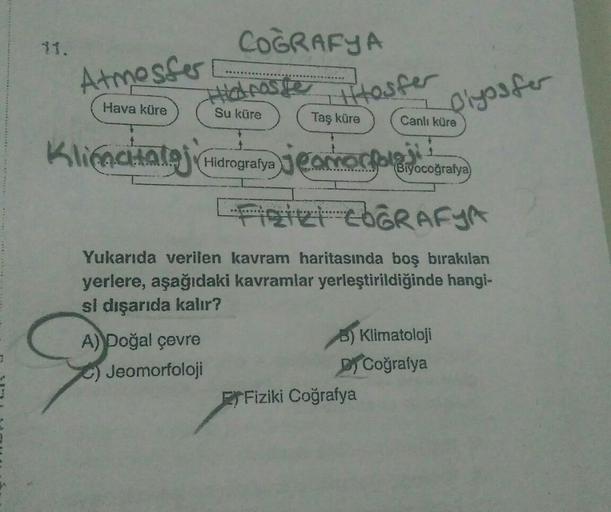 11. COĞRAFYA
Atmosfer
Hidrosfer litosfer Biyosfer
Hava küre Su küre Taş küre Canlı küre
Klimataloji Hidrografya jeomorfoloji Biyocoğrafya
FİZİKİ COĞRAFYA
Yukarıda verilen kavram haritasında boş bırakılan
yerlere, aşağıdaki kavramlar yerleştirildiğinde hangi-
si dışarıda kalır?
A) Doğal çevre B) Klimatoloji
C) Jeomorfoloji D) Coğrafya
E) Fiziki Coğrafya